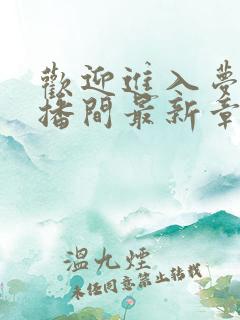 歡迎進入夢
播間最新章
溫九煙
未任同意禁止轉載